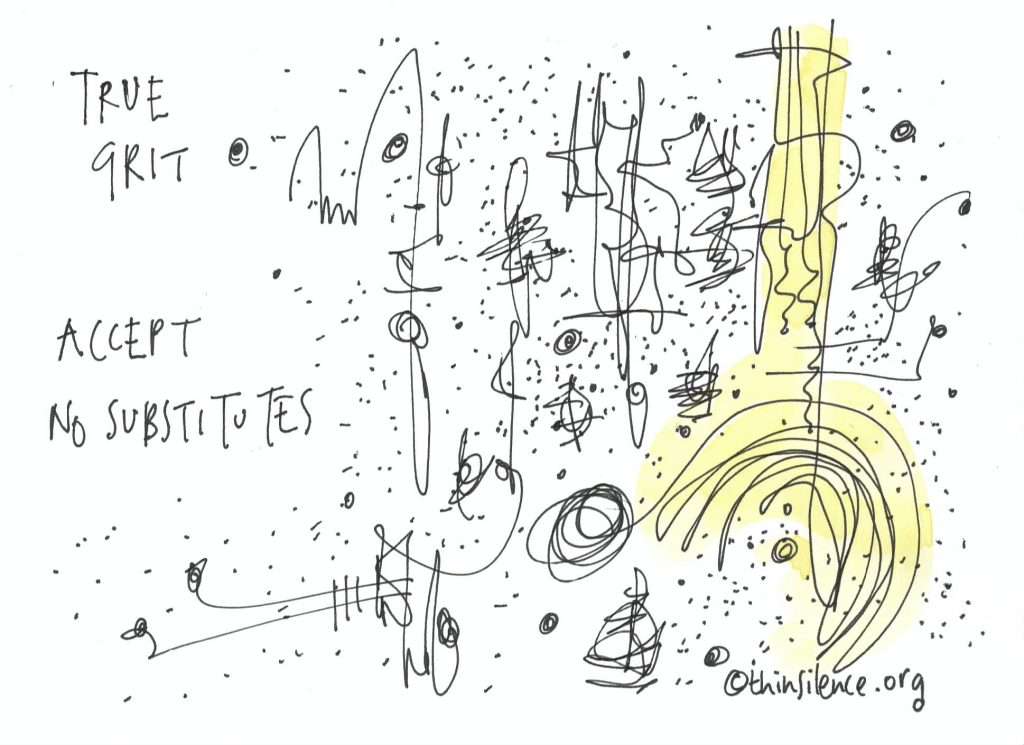 TRUE
GRIT
ACCEPT
NO SUBSTITUTES
©thinsilence.org